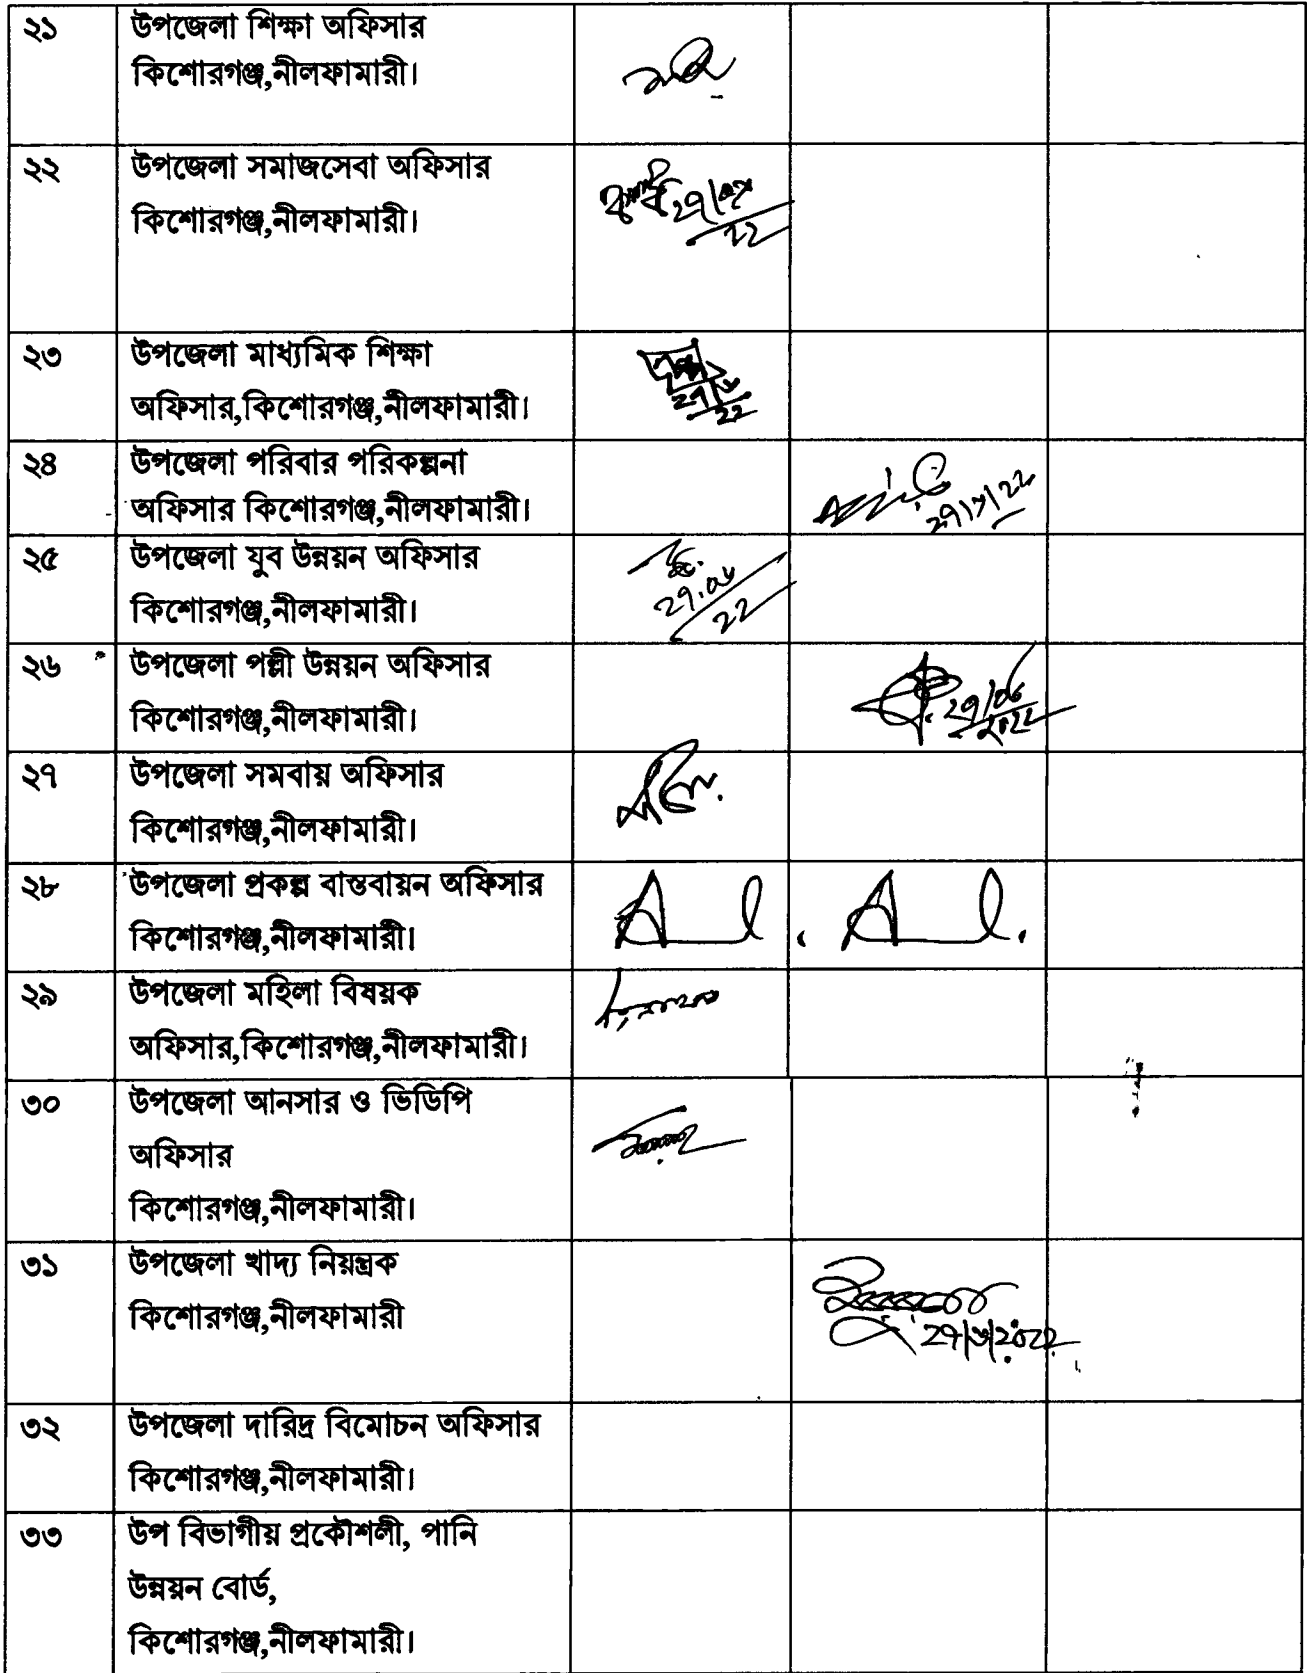 ২১
উপজেলা শিক্ষা অফিসার
কিশোরগঞ্জ,নীলফামারী।
২২
উপজেলা সমাজসেবা অফিসার
কিশোরগঞ্জ,নীলফামারী।
২৩
উপজেলা মাধ্যমিক শিক্ষা
অফিসার,কিশোরগঞ্জ,নীলফামারী।
২৪
উপজেলা পরিবার পরিকল্পনা
অফিসার কিশোরগঞ্জ,নীলফামারী।
২৫
উপজেলা যুব উন্নয়ন অফিসার
কিশোরগঞ্জ,নীলফামারী।
২৬
উপজেলা পল্লী উন্নয়ন অফিসার
কিশোরগঞ্জ,নীলফামারী।
২৭
উপজেলা সমবায় অফিসার
কিশোরগঞ্জ,নীলফামারী।
২৮
উপজেলা প্রকল্প বাস্তবায়ন অফিসার
কিশোরগঞ্জ,নীলফামারী।
২৯
উপজেলা মহিলা বিষয়ক
অফিসার,কিশোরগঞ্জ,নীলফামারী।
৩০
উপজেলা আনসার ও ভিডিপি
অফিসার
কিশোরগঞ্জ,নীলফামারী।
৩১
উপজেলা খাদ্য নিয়ন্ত্রক
কিশোরগঞ্জ,নীলফামারী
৩২
উপজেলা দারিদ্র বিমোচন অফিসার
কিশোরগঞ্জ,নীলফামারী।
৩৩
উপ বিভাগীয় প্রকৌশলী, পানি
উন্নয়ন বোর্ড,
কিশোরগঞ্জ,নীলফামারী।